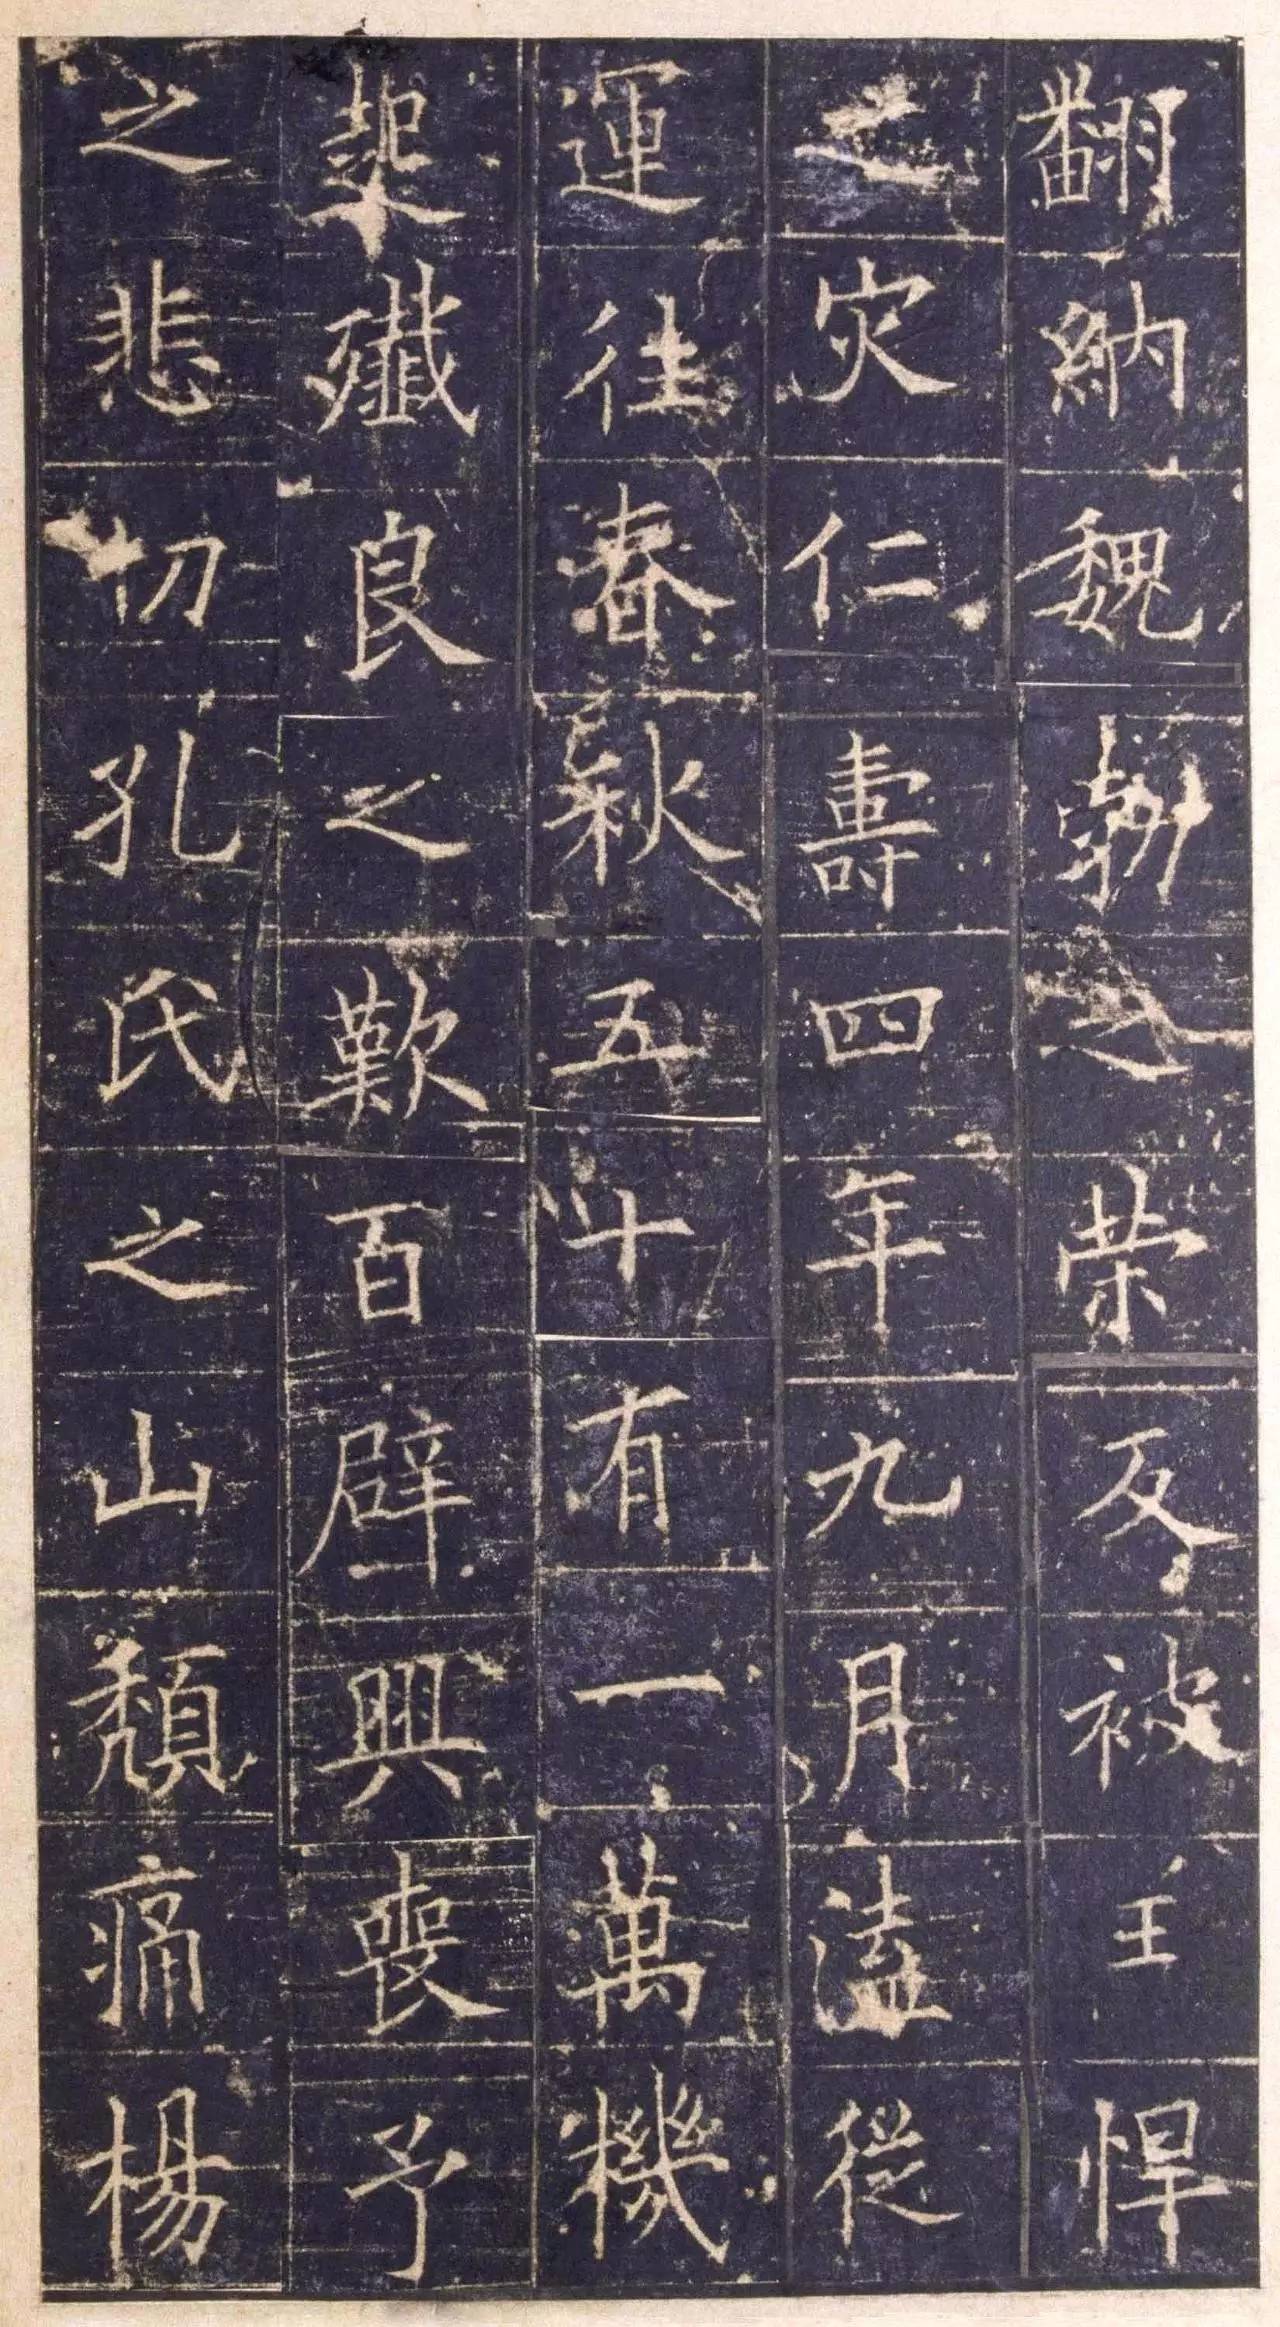 翻納魏勃之荣反被王悍
之灾仁壽四年九月溘從
運往春秋五十有一萬機
起殲良之歎百辟興喪予
之悲切孔氏之山頹痛楊